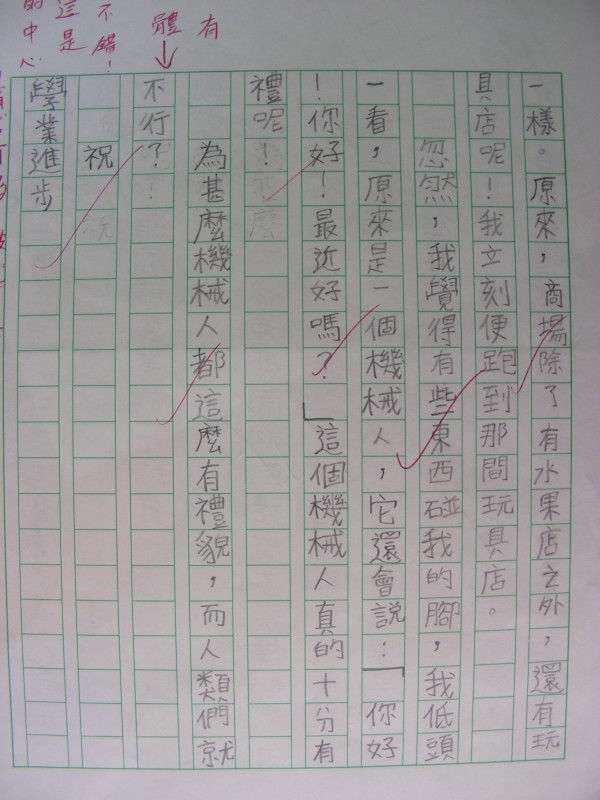 一樣。原來，商場除了有水果店之外，還有玩
具店呢！我立刻便跑到那間玩具店。
忽然，我覺得有些東西碰我的腳，我低頭
一看，原來是一個機械人，它還會說：「你好
！你好！最近好嗎？」這個機械人真的十分有
禮呢！
為甚麼機械人都這麼有禮貌，而人類們就
不行？
祝
學業進步
有
體
不錯！
這是
的中心